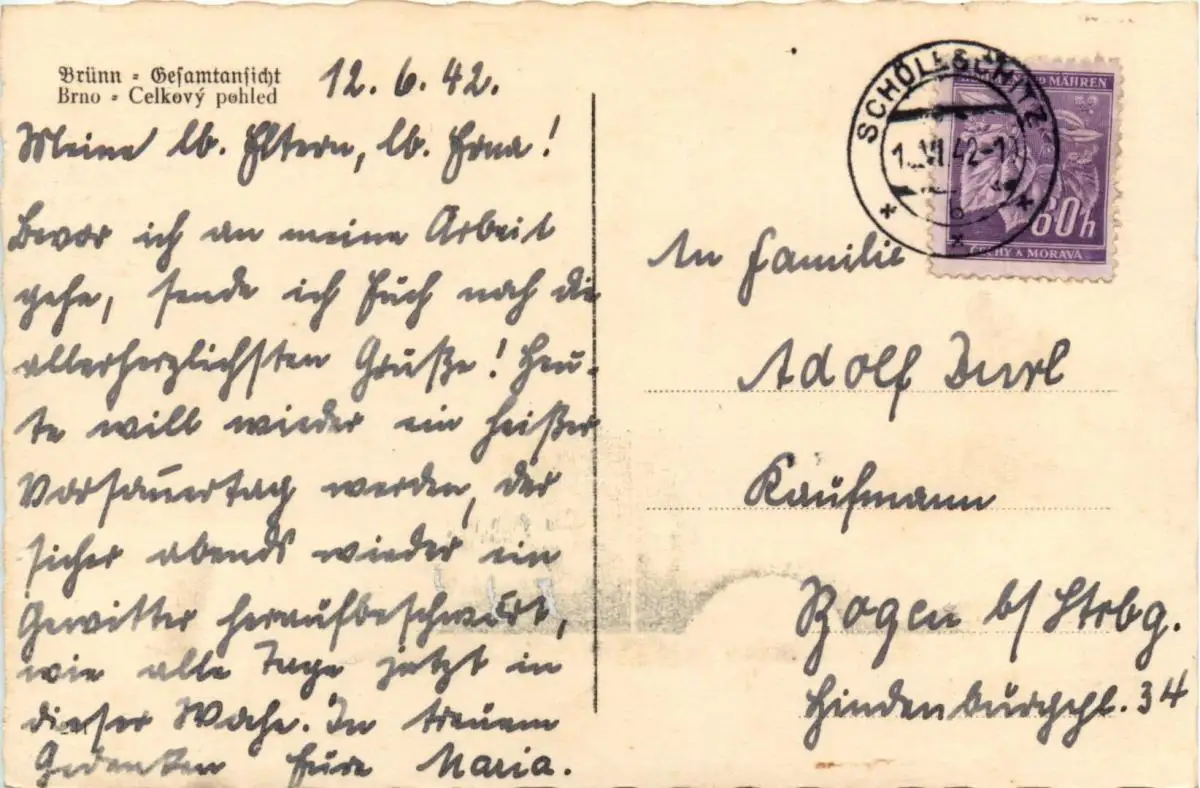 Brünn - Gesamtansicht
Brno - Celkový pohled
12. 6. 42.
Meine lb. Eltern, lb. Erna!
Bevor ich an meine Arbeit
gehe, sende ich Euch noch die
allerherzlichsten Grüße! Heu-
te will wieder ein heißer
tag werden, der
sicher abends wieder ein
Gewitter heraufbeschwört,
wie alle Tage jetzt in
dieser Woche. In treuem
Gedenken Eure Maria.
SCHÖLLSCHITZ
VI. 42-1
b
MÄHREN
60h
ČECHY A MORAVA
An Familie
Adolf
Kaufmann
Bogen b/ Strbg.
Hindenburgpl. 34